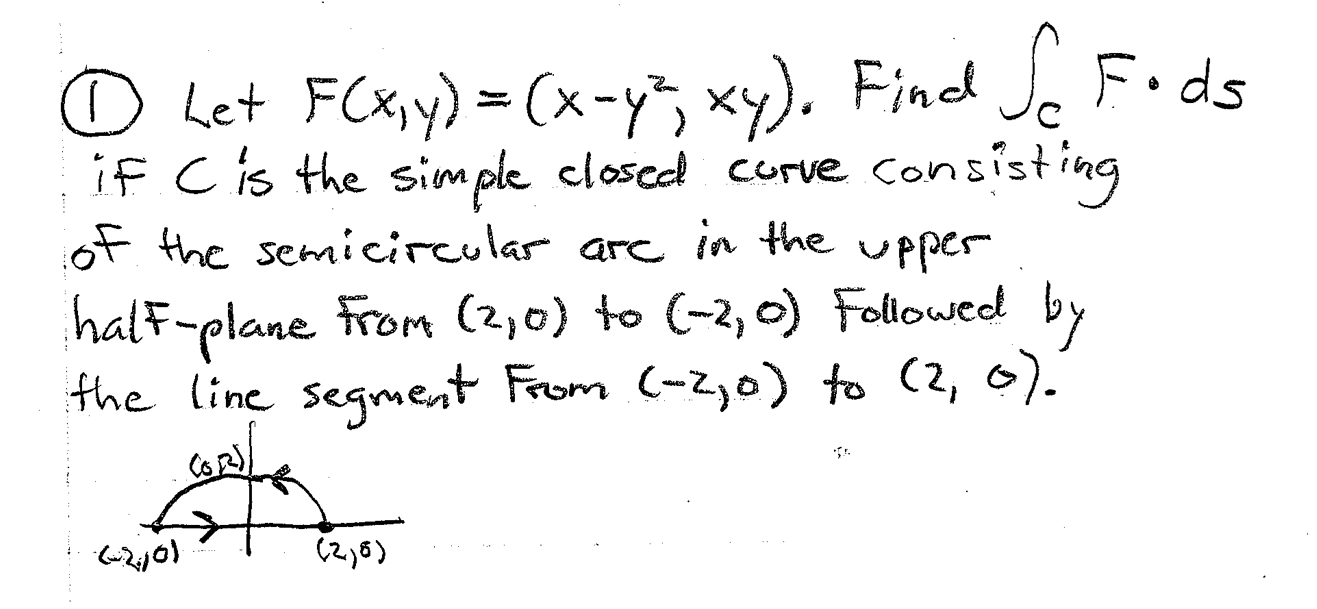 ① Let F(x,y) = (x-y², xy). Find ∫_C F·ds
if C is the simple closed curve consisting
of the semicircular arc in the upper
half-plane from (2,0) to (-2,0) followed by
the line segment from (-2,0) to (2, 0).
(0,2)
(-2,0) (2,0)